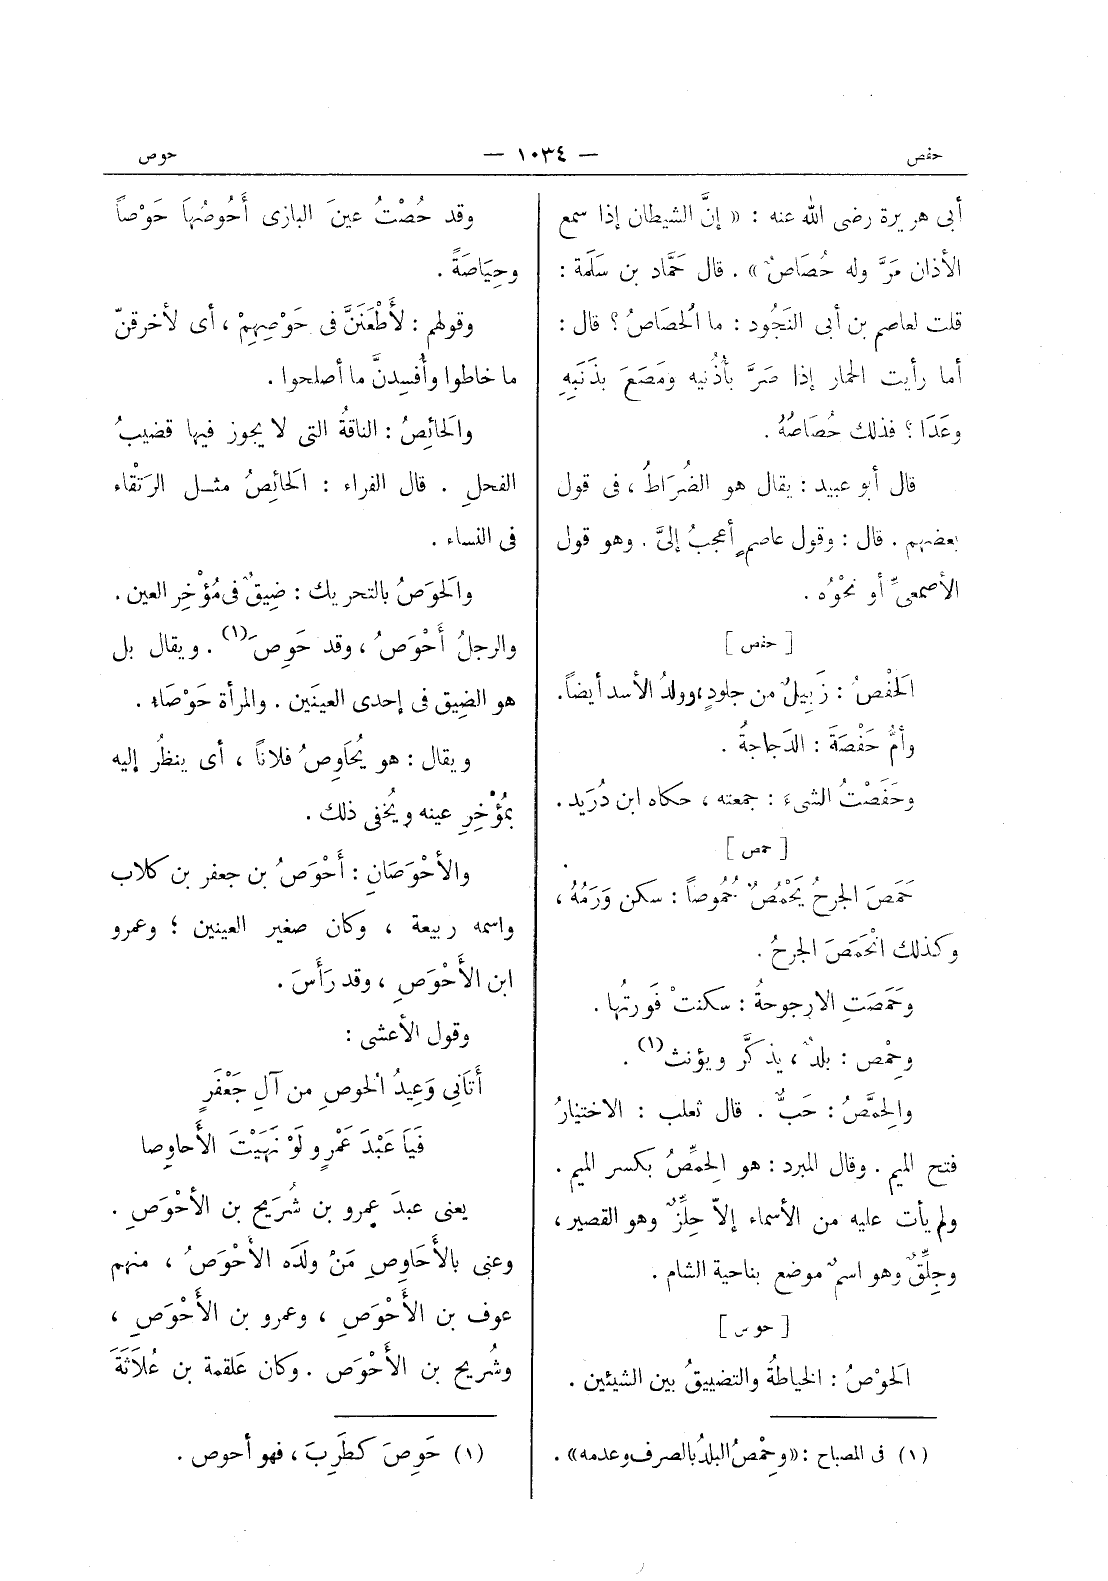 حفص
— ١٠٣٤ —
حوص
أبى هريرة رضى الله عنه : « إنَّ الشيطان إذا سمع
الأذان مَرَّ وله حُصَاصٌ » . قال حَمَّاد بن سَلَمة :
قلت لعاصم بن أبى النَجُود : ما الْحصَاصُ ؟ قال :
أما رأيت الحمار إذا صَرَّ بأُذُنيه ومَصَعَ بذَنَبِهِ
وعَدَا ؟ فذلك حُصَاصُهُ .
قال أبو عبيد : يقال هو الضُرَاطُ ، فى قول
بعضهم . قال : وقول عاصمٍ أعجبُ إلىَّ . وهو قول
الأصمعىِّ أو نحْوُه .
[ حفص ]
الَحفْصُ : زَبِيلٌ من جلودٍ ، وولدُ الأسد أيضاً .
وأمُّ حَفْصَةَ : الدَجاجةُ .
وحَفَصْتُ الشىءَ : جمعته ، حكاه ابن دُرَيد .
[ حمص ]
حَمَصَ الجرحُ يَحْمُصُ حُمُوصاً : سكن وَرَمُهُ ،
وكذلك انْحَمَصَ الجرحُ .
وحَمَصَتِ الارجوحةُ : سكنتْ فَورتُها .
وحِمْص : بلدٌ ، يذكَّر ويؤنث (١) .
والحِمَّصُ : حَبٌّ . قال ثعلب : الاختيارُ
فتح الميم . وقال المبرد : هو الحِمِّصُ بكسر الميم .
ولم يأت عليه من الأسماء إلاّ حِلِّزٌ وهو القصير ،
وجِلِّقٌ وهو اسمٌ موضع بناحية الشام .
[ حوص ]
الَحوْصُ : الخياطةُ والتضييقُ بين الشيئين .
(١) فى المصباح : « وحِمْصُ البلدُ بالصرف وعدمه » .
وقد حُصْتُ عينَ البازى أَحُوصُهَا حَوْصاً
وحِيَاصَةً .
وقولهم : لأَطْعَنَنَّ فى حَوْصِهِمْ ، أى لأخرقنّ
ما خاطوا وأُفسِدنَّ ما أصلحوا .
والَحائِصُ : الناقةُ التى لا يجوز فيها قضيبُ
الفحلِ . قال الفراء : الَحائِصُ مثل الرَتْقاء
فى النساء .
والَحوَصُ بالتحريك : ضِيقٌ فى مُؤْخِرِ العين .
والرجلُ أَحْوَصُ ، وقد حَوِصَ (١) . ويقال بل
هو الضِيق فى إحدى العينَين . والمرأة حَوْصَاء .
ويقال : هو يُحَاوِصُ فلاناً ، أى ينظُر إليه
بمُؤْخِرِ عينه ويُخفى ذلك .
والأحْوَصَانِ : أَحْوَصُ بن جعفر بن كلاب
واسمه ربيعة ، وكان صغير العينين ؛ وعمرو
ابن الأَحْوَصِ ، وقد رَأَسَ .
وقول الأعشى :
أَتَانِى وَعِيدُ الْحوصِ من آلِ جَعْفَرٍ
فَيَا عَبْدَ عَمْرٍو لَوْ نَهَيْتَ الأَحاوِصا
يعنى عبدَ عمرو بن شُرَيح بن الأحْوَصِ .
وعنى بالأَحَاوِصِ مَنْ ولَدَه الأَحْوَصُ ، منهم
عوف بن الأَحْوَصِ ، وعمرو بن الأَحْوَصِ ،
وشُريح بن الأَحْوَص . وكان عَلقمة بن عُلَاثَةَ
(١) حَوِصَ كطَرِبَ ، فهو أحوص .